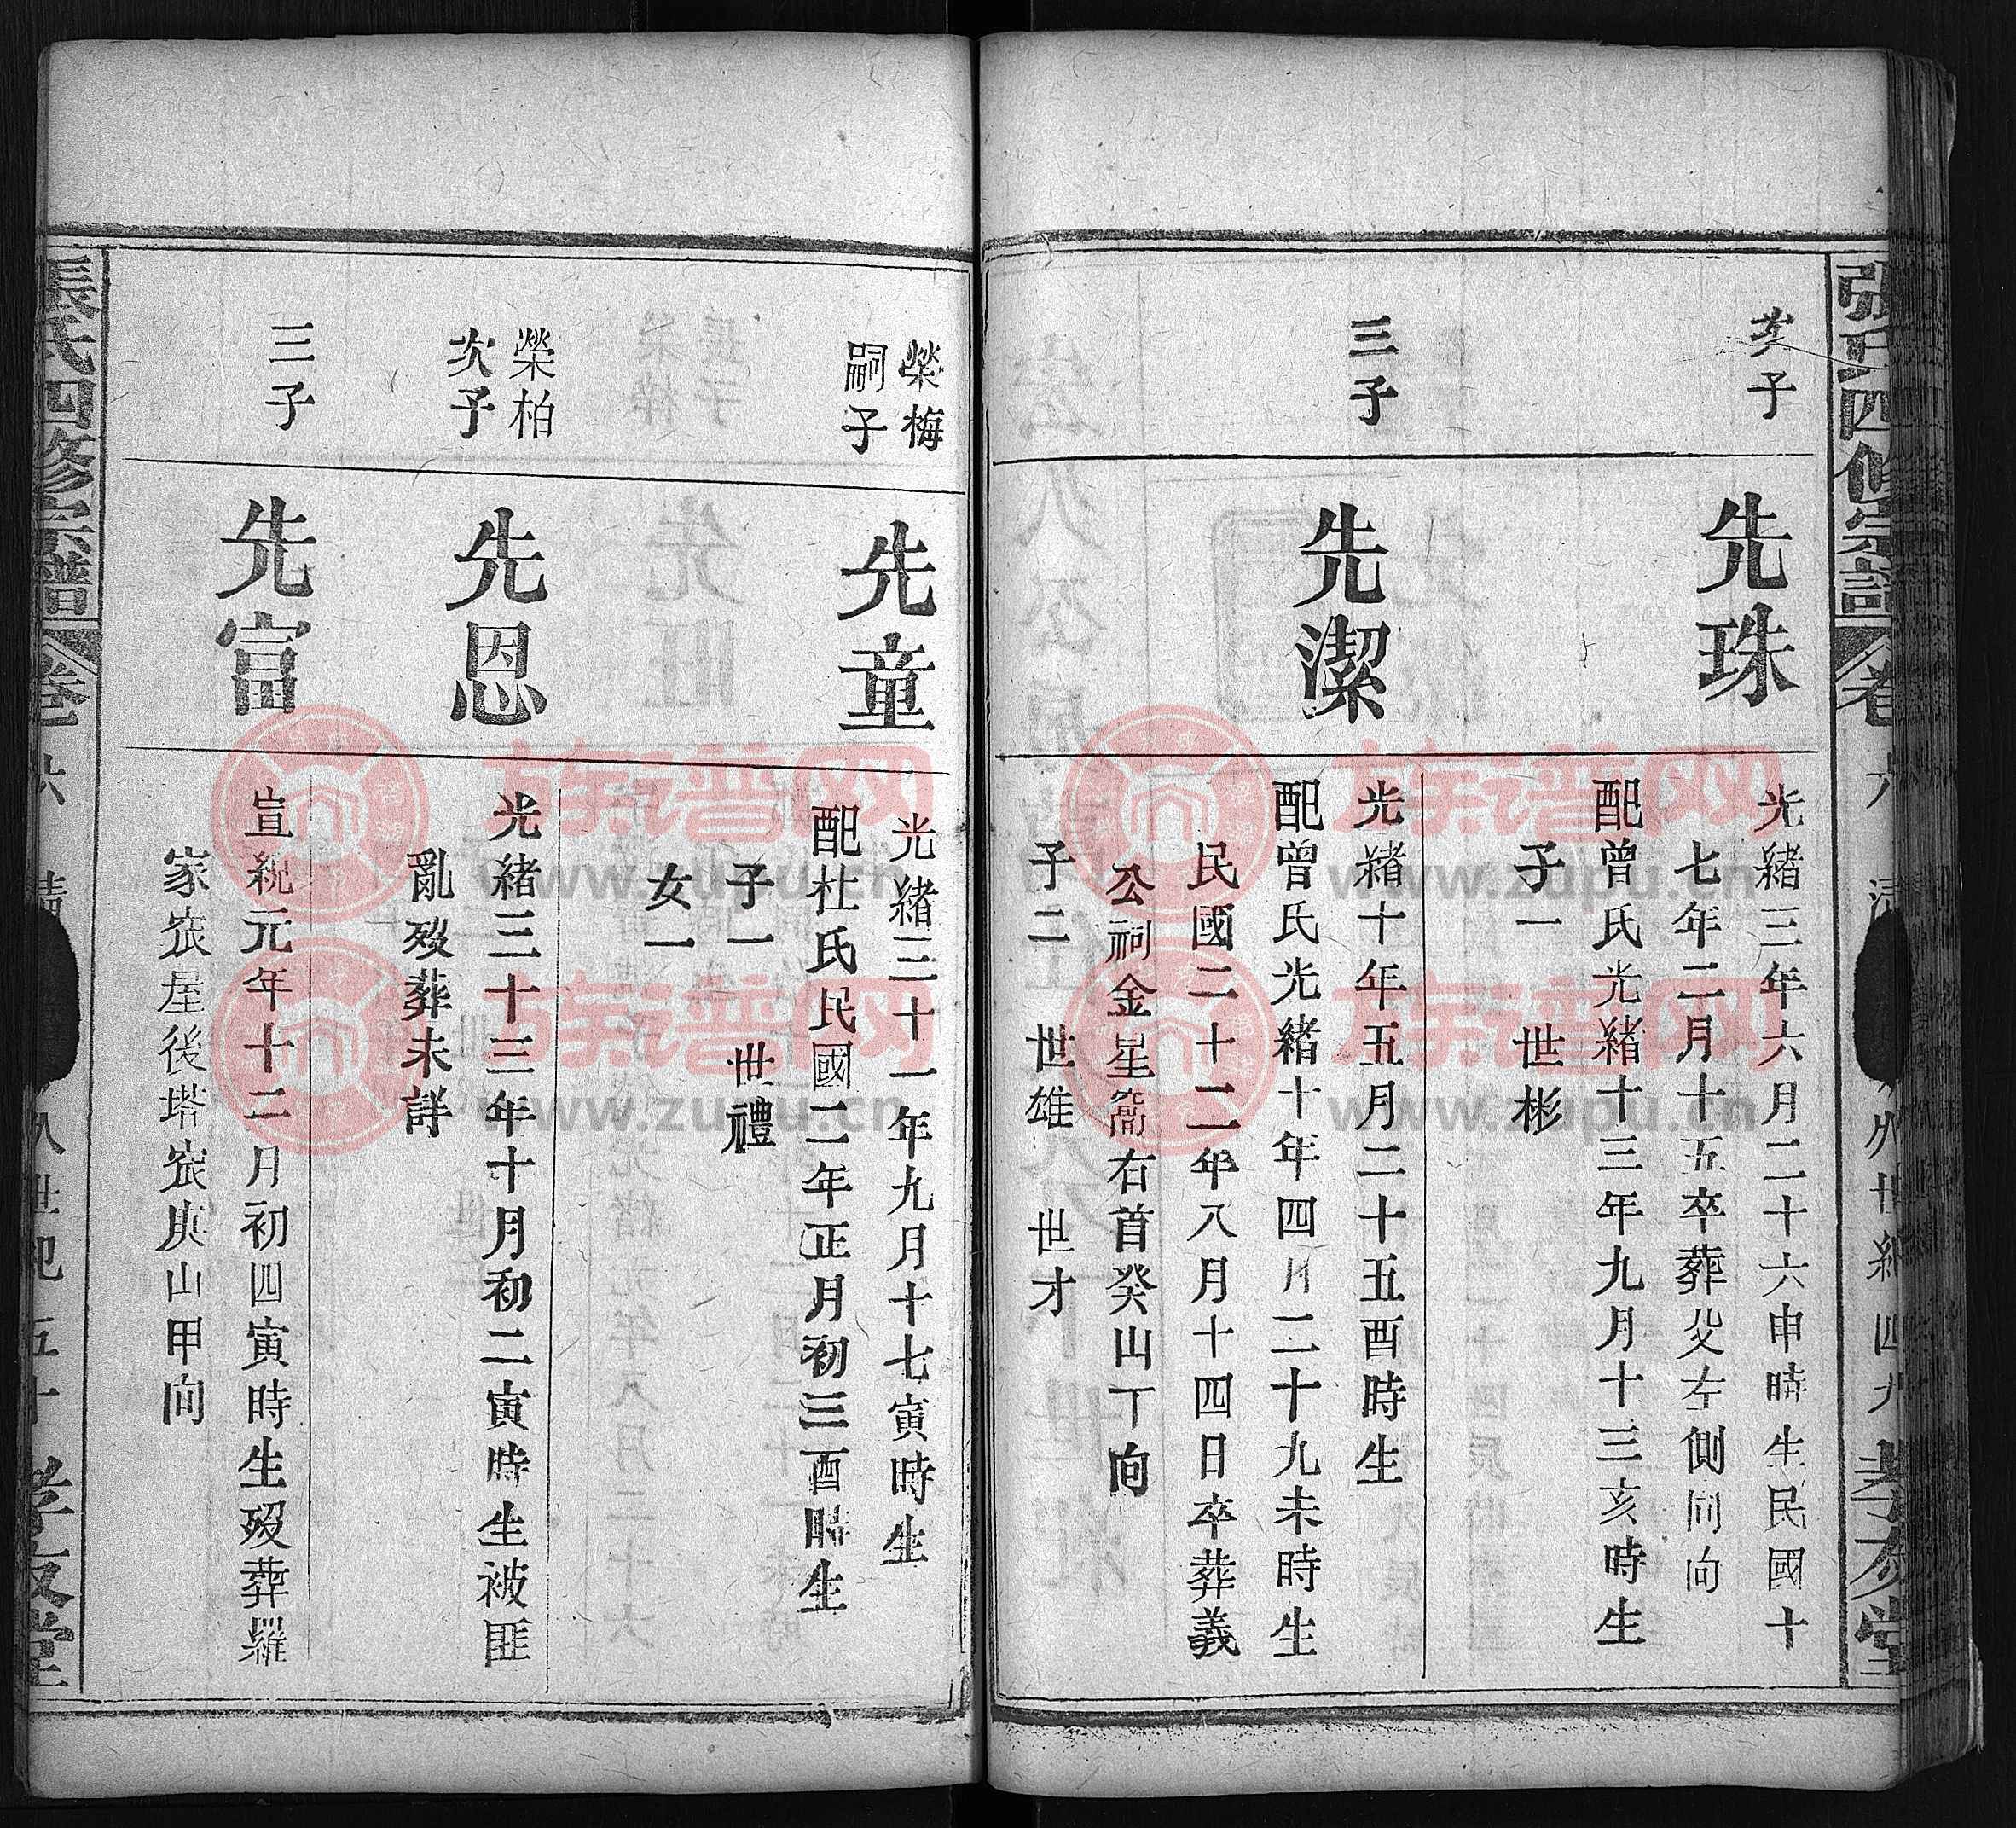 張氏四修宗譜
卷六
孝友堂
次子
先珠
光緒三年六月二十六申時生民國十
七年二月十五卒葬父左側同向
配曾氏光緒十三年九月十三亥時生
子一 世彬
三子
先潔
光緒十年五月二十五酉時生
配曾氏光緒十年四月二十九未時生
民國二十二年八月十四日卒葬義
公祠金星窩右首癸山丁向
子二 世雄 世才
榮梅
嗣子
先童
光緒三十一年九月十七寅時生
配杜氏民國二年正月初三酉時生
子一 世禮
女一
榮柏
次子
先恩
光緒三十三年十月初二寅時生被匪
亂歿葬未詳
三子
先富
宣統元年十二月初四寅時生歿葬羅
家㟍屋後塔㟍庚山甲向
張氏四修宗譜
卷六
世紀五十
孝友堂
族谱网
www.zupu.cn
族谱网
www.zupu.cn
族谱网
www.zupu.cn
族谱网
www.zupu.cn